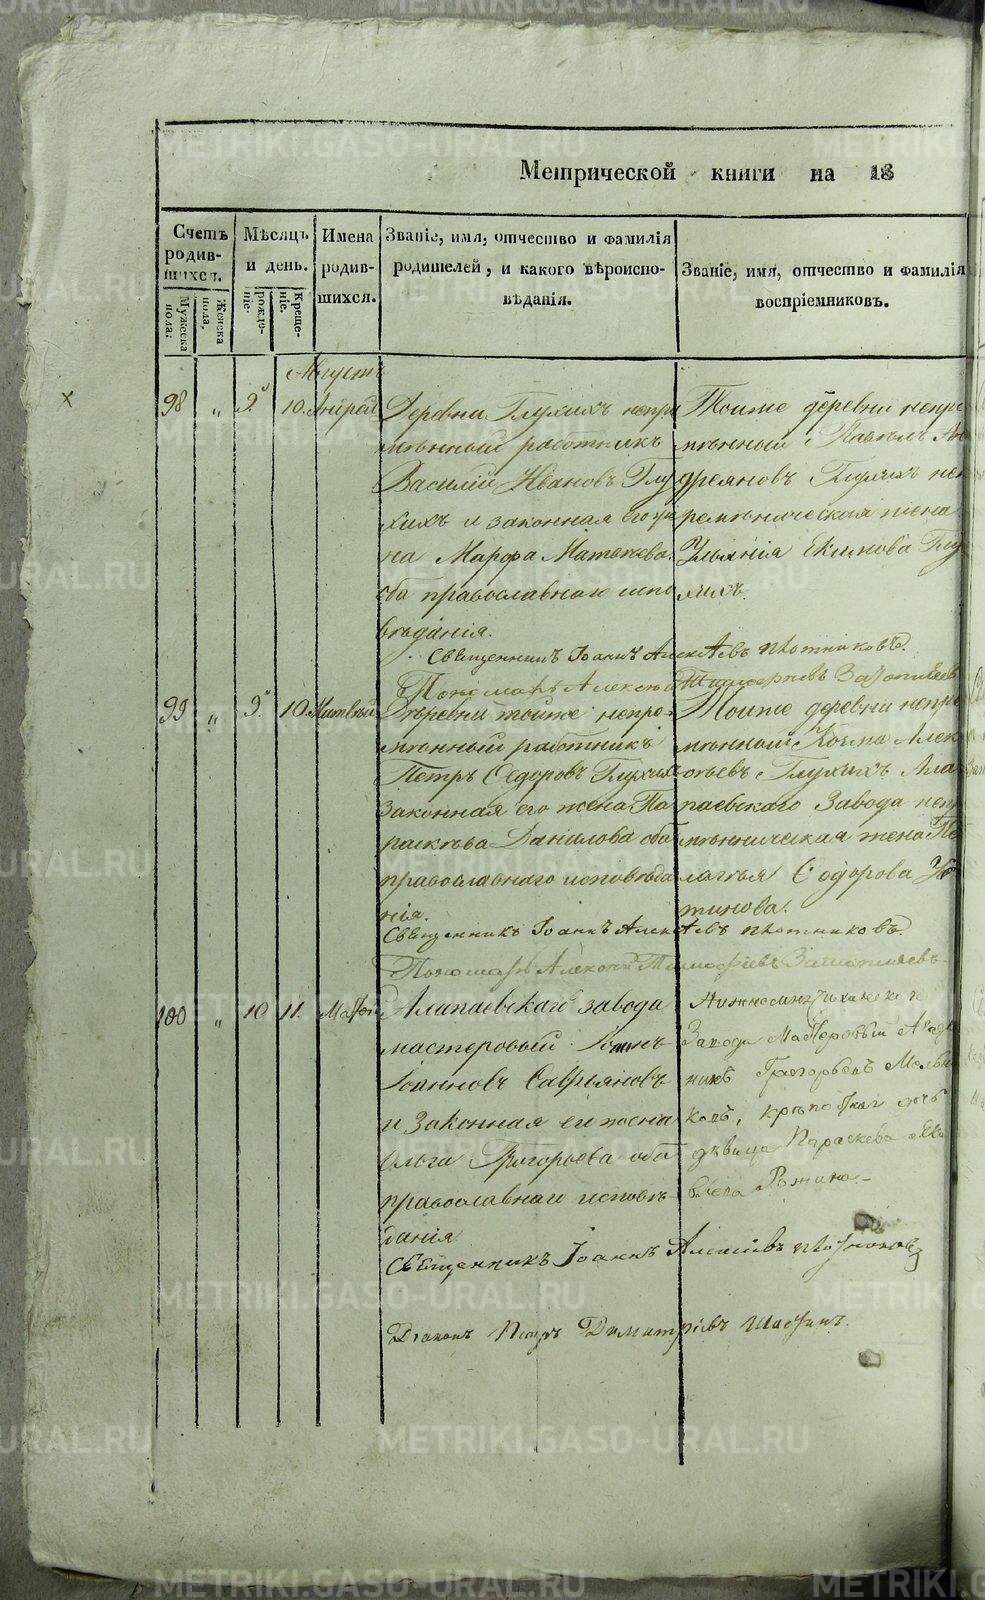 Метрической книги на 18
Счетъ родившихся.
Мужеска пола.
Женска пола.
Мѣсяцъ и день.
Рожденіе.
Крещеніе.
Имена родившихся.
Званіе, имя, отчество и фамилія
родителей, и какого вѣроиспо-
вѣданія.
Званіе, имя, отчество и фамилія
воспріемниковъ.
Августъ
98 " 9. 10. Андрей
Деревни Глухихъ непре
мѣнный работникъ
Василій Ивановъ Глу
хихъ и законная его же
на Марфа Матвеева
оба православнаго испо
вѣданія.
Тоиже деревни непре
мѣнный Павелъ Ан
дреяновъ Глухихъ неп
ремѣнническая жена
Ульянія Екимова Глу
хихъ.
Священникъ Іоаннъ Алексѣевъ Плотниковъ.
Пономарь Алексѣй Тимофеевъ
99 " 9. 10. Матвѣй
Деревни тойже непре
мѣнный работникъ
Петръ Федоровъ Глухихъ
Законная его жена Па
раскева Данилова оба
православнаго исповѣда
нія.
Тоиже деревни непре
мѣнный Козма Алек
сѣевъ Глухихъ Ала
паевскаго Завода непре
мѣнническая жена Пе
лагѣя Сидорова
тинова.
Священникъ Іоаннъ Алексѣевъ Плотниковъ.
Пономарь Алексѣй Тимофѣевъ
100 " 10 11.
Алапаевскаго завода
мастеровый Іоаннъ
Іоанновъ
и Законная его жена
Ольга Григорьева оба
православнаго исповѣ-
данія
Завода Мастеровый
никъ Григорьевъ Мельни
ковъ,
дѣвица Параскева
Священникъ Іоаннъ Алексіевъ Плотниковъ
Діаконъ Петръ Димитріевъ
METRIKI.GASO-URAL.RU